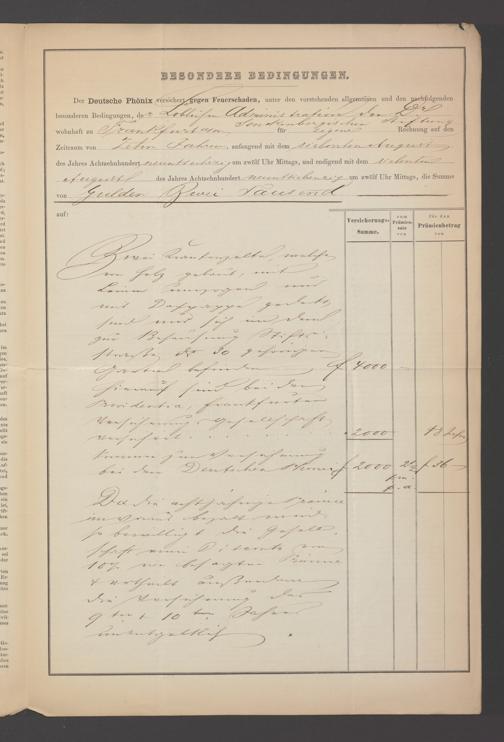 BESONDERE BEDINGUNGEN.
Der Deutsche Phönix versichert gegen Feuerschaden, unter den vorstehenden allgemeinen und den nachfolgenden
besonderen Bedingungen, der Löblichen Administration der Dr.
Senckenbergischen Stiftung
wohnhaft zu Frankfurt a/m für eigene Rechnung auf den
Zeitraum von zehn Jahren, anfangend mit dem siebenten August
des Jahres Achtzehnhundert neunundsechzig um zwölf Uhr Mittags, und endigend mit dem siebenten
August des Jahres Achtzehnhundert neunundsiebenzig um zwölf Uhr Mittags, die Summe
von Gulden Zwei Tausend
auf:
Versicherungs-Summe.
zum Prämien-satz von
für den Prämienbetrag von
Zwei Krankenzelte, welche
von Holz gebaut, mit
Leinen umzogen und
mit Dachpappe gedeckt
sind und sich in dem
zur Behausung Stifts-
strasse No 30 gehörigen
Garten befinden f. 4000
hierauf sind bei der
Providentia, Frankfurter
Versicherungs-Gesellschaft
versichert . . . . 2000
kommen zur Versicherung
bei dem Deutschen Phönix f. 2000
Da die achtjährige Prämie
im Voraus bezahlt wird
so bewilligt die Gesell-
schaft einen Disconto von
10% an besagter Prämie
& ertheilt ausserdem
die Versicherung des
9ten & 10ten Jahres
unentgeltlich.